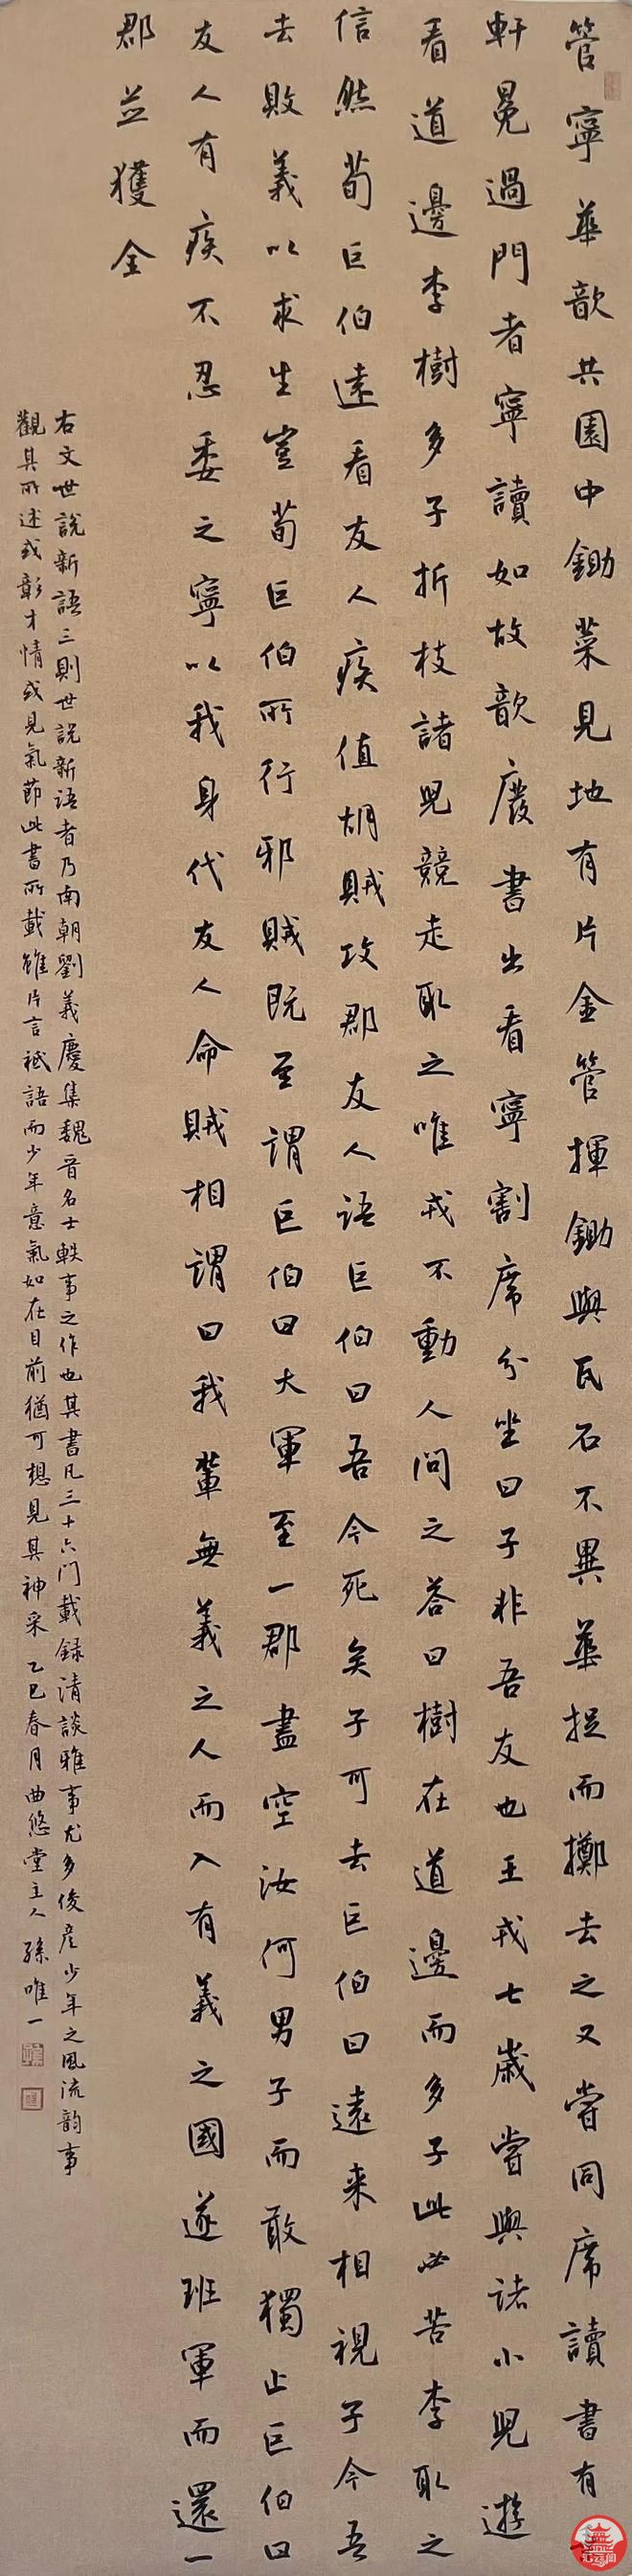 管寧華歆共園中鋤菜見地有片金管揮鋤與瓦石不異華捉而擲去之又嘗同席讀書有
軒冕過門者寧讀如故歆廢書出看寧割席分坐曰子非吾友也王戎七歲嘗與諸小兒遊
看道邊李樹多子折枝諸兒競走取之唯戎不動人問之答曰樹在道邊而多子此必苦李取之
信然荀巨伯遠看友人疾值胡賊攻郡友人語巨伯曰吾今死矣子可去巨伯曰遠来相視子令吾
去敗義以求生豈荀巨伯所行邪賊既至謂巨伯曰大軍至一郡盡空汝何男子而敢獨止巨伯曰
友人有疾不忍委之寧以我身代友人命賊相謂曰我輩無義之人而入有義之國遂班軍而還一
郡並獲全
右文世說新語三則世說新語者乃南朝劉義慶集魏晉名士軼事之作也其書凡三十六門載録清談雅事尤多俊彦少年之風流韵事
觀其所述或彰才情或見氣節此書所載雖片言祇語而少年意氣如在目前猶可想見其神采乙巳春月曲悠堂主人孫唯一